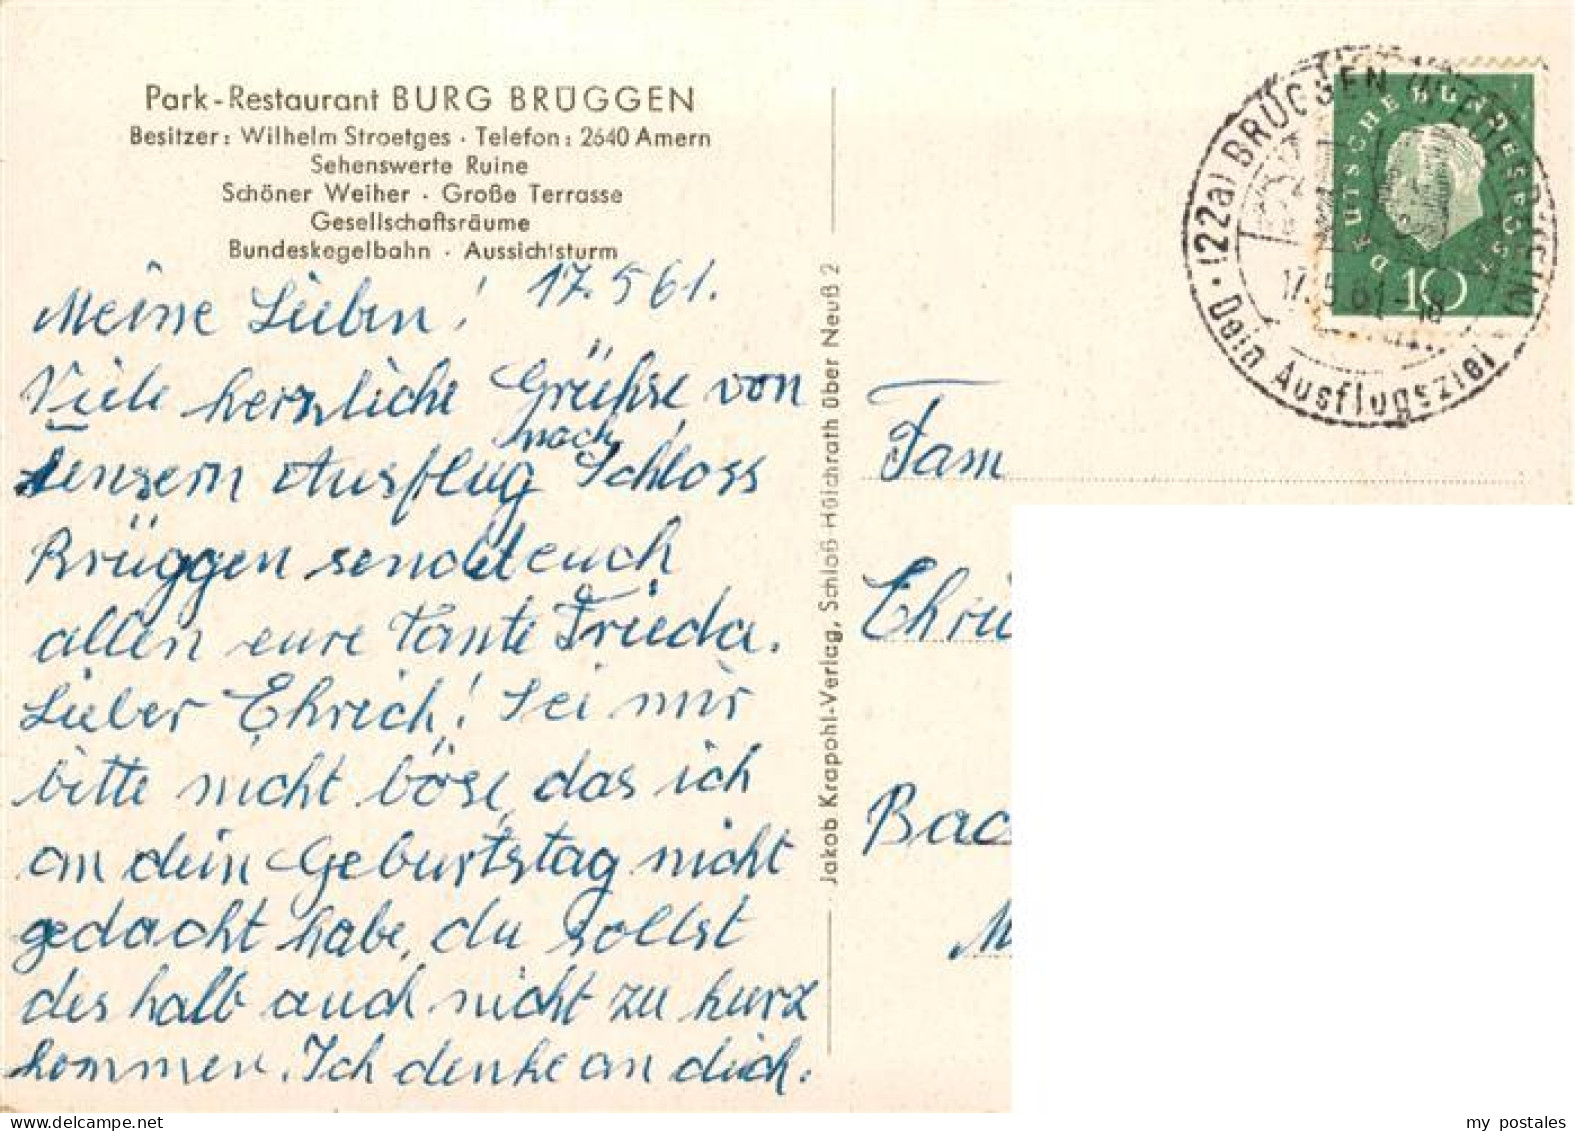 Park-Restaurant BURG BRÜGGEN
Besitzer: Wilhelm Stroetges · Telefon: 2640 Amern
Sehenswerte Ruine
Schöner Weiher · Große Terrasse
Gesellschaftsräume
Bundeskegelbahn · Aussichtsturm
17.5 61.
Meine Lieben!
Viele herzliche Grühse von
unsern Ausflug nach Schloss
Brüggen sendet euch
allen eure Tante Frieda.
Lieber Ehrich! Sei mir
bitte nicht böse, das ich
an dein Geburtstag nicht
gedacht habe, du sollst
deshalb auch nicht zu kurz
kommen. Ich denke an dich.
Jakob Krapohl-Verlag, Schloß Hülchrath über Neuß 2
(22a) BRÜGGEN
17.5.61-18
Dein Ausflugsziel
DEUTSCHE BUNDESPOST
10
Fam
Ehri
Bac
M
my postales